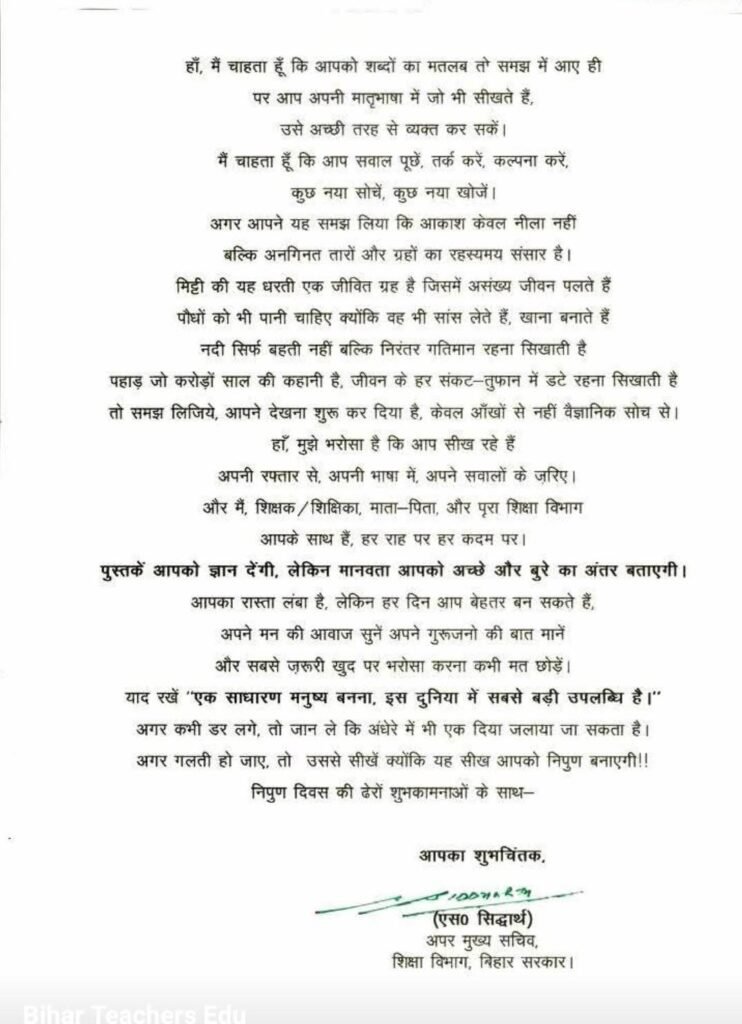 हाँ, मैं चाहता हूँ कि आपको शब्दों का मतलब तो समझ में आए ही
पर आप अपनी मातृभाषा में जो भी सीखते हैं,
उसे अच्छी तरह से व्यक्त कर सकें।
मैं चाहता हूँ कि आप सवाल पूछें, तर्क करें, कल्पना करें,
कुछ नया सोचें, कुछ नया खोजें।
अगर आपने यह समझ लिया कि आकाश केवल नीला नहीं
बल्कि अनगिनत तारों और ग्रहों का रहस्यमय संसार है।
मिट्टी की यह धरती एक जीवित ग्रह है जिसमें असंख्य जीवन पलते हैं
पौधों को भी पानी चाहिए क्योंकि वह भी सांस लेते हैं, खाना बनाते हैं
नदी सिर्फ बहती नहीं बल्कि निरंतर गतिमान रहना सिखाती है
पहाड़ जो करोड़ों साल की कहानी है, जीवन के हर संकट–तुफान में डटे रहना सिखाती है
तो समझ लिजिये, आपने देखना शुरू कर दिया है, केवल आँखों से नहीं वैज्ञानिक सोच से।
हाँ, मुझे भरोसा है कि आप सीख रहे हैं
अपनी रफ्तार से, अपनी भाषा में, अपने सवालों के ज़रिए।
और मैं, शिक्षक/शिक्षिका, माता–पिता, और पूरा शिक्षा विभाग
आपके साथ हैं, हर राह पर हर कदम पर।
पुस्तकें आपको ज्ञान देंगी, लेकिन मानवता आपको अच्छे और बुरे का अंतर बताएगी।
आपका रास्ता लंबा है, लेकिन हर दिन आप बेहतर बन सकते हैं,
अपने मन की आवाज सुनें अपने गुरूजनो की बात मानें
और सबसे ज़रूरी खुद पर भरोसा करना कभी मत छोड़ें।
याद रखें "एक साधारण मनुष्य बनना, इस दुनिया में सबसे बड़ी उपलब्धि है।"
अगर कभी डर लगे, तो जान ले कि अंधेरे में भी एक दिया जलाया जा सकता है।
अगर गलती हो जाए, तो उससे सीखें क्योंकि यह सीख आपको निपुण बनाएगी!!
निपुण दिवस की ढेरों शुभकामनाओं के साथ–
आपका शुभचिंतक,
(एस0 सिद्धार्थ)
अपर मुख्य सचिव,
शिक्षा विभाग, बिहार सरकार।
Bihar Teachers Edu